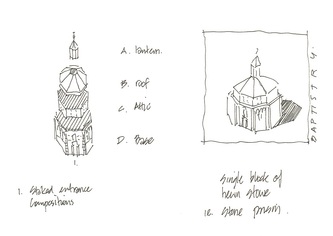 A. lantern.
B. roof
C. Attic
D. Base
1.
1. stacked entrance
compositions
BAPTISTRY.
single block of
hewn stone
ie. stone prism.